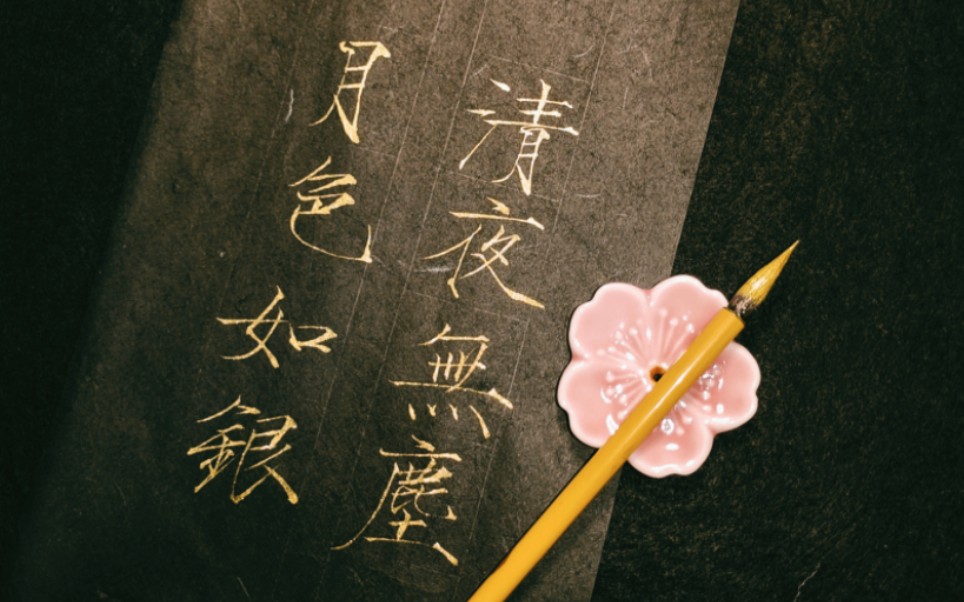 清夜無塵
月色如銀